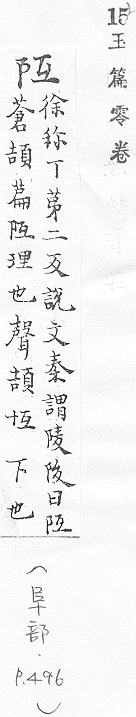 15 玉篇零卷
阺
徐弥丁苐二反說文秦謂陵阪曰阺
蒼頡篇阺理也聲頡坘下也
（阜部．P.496）